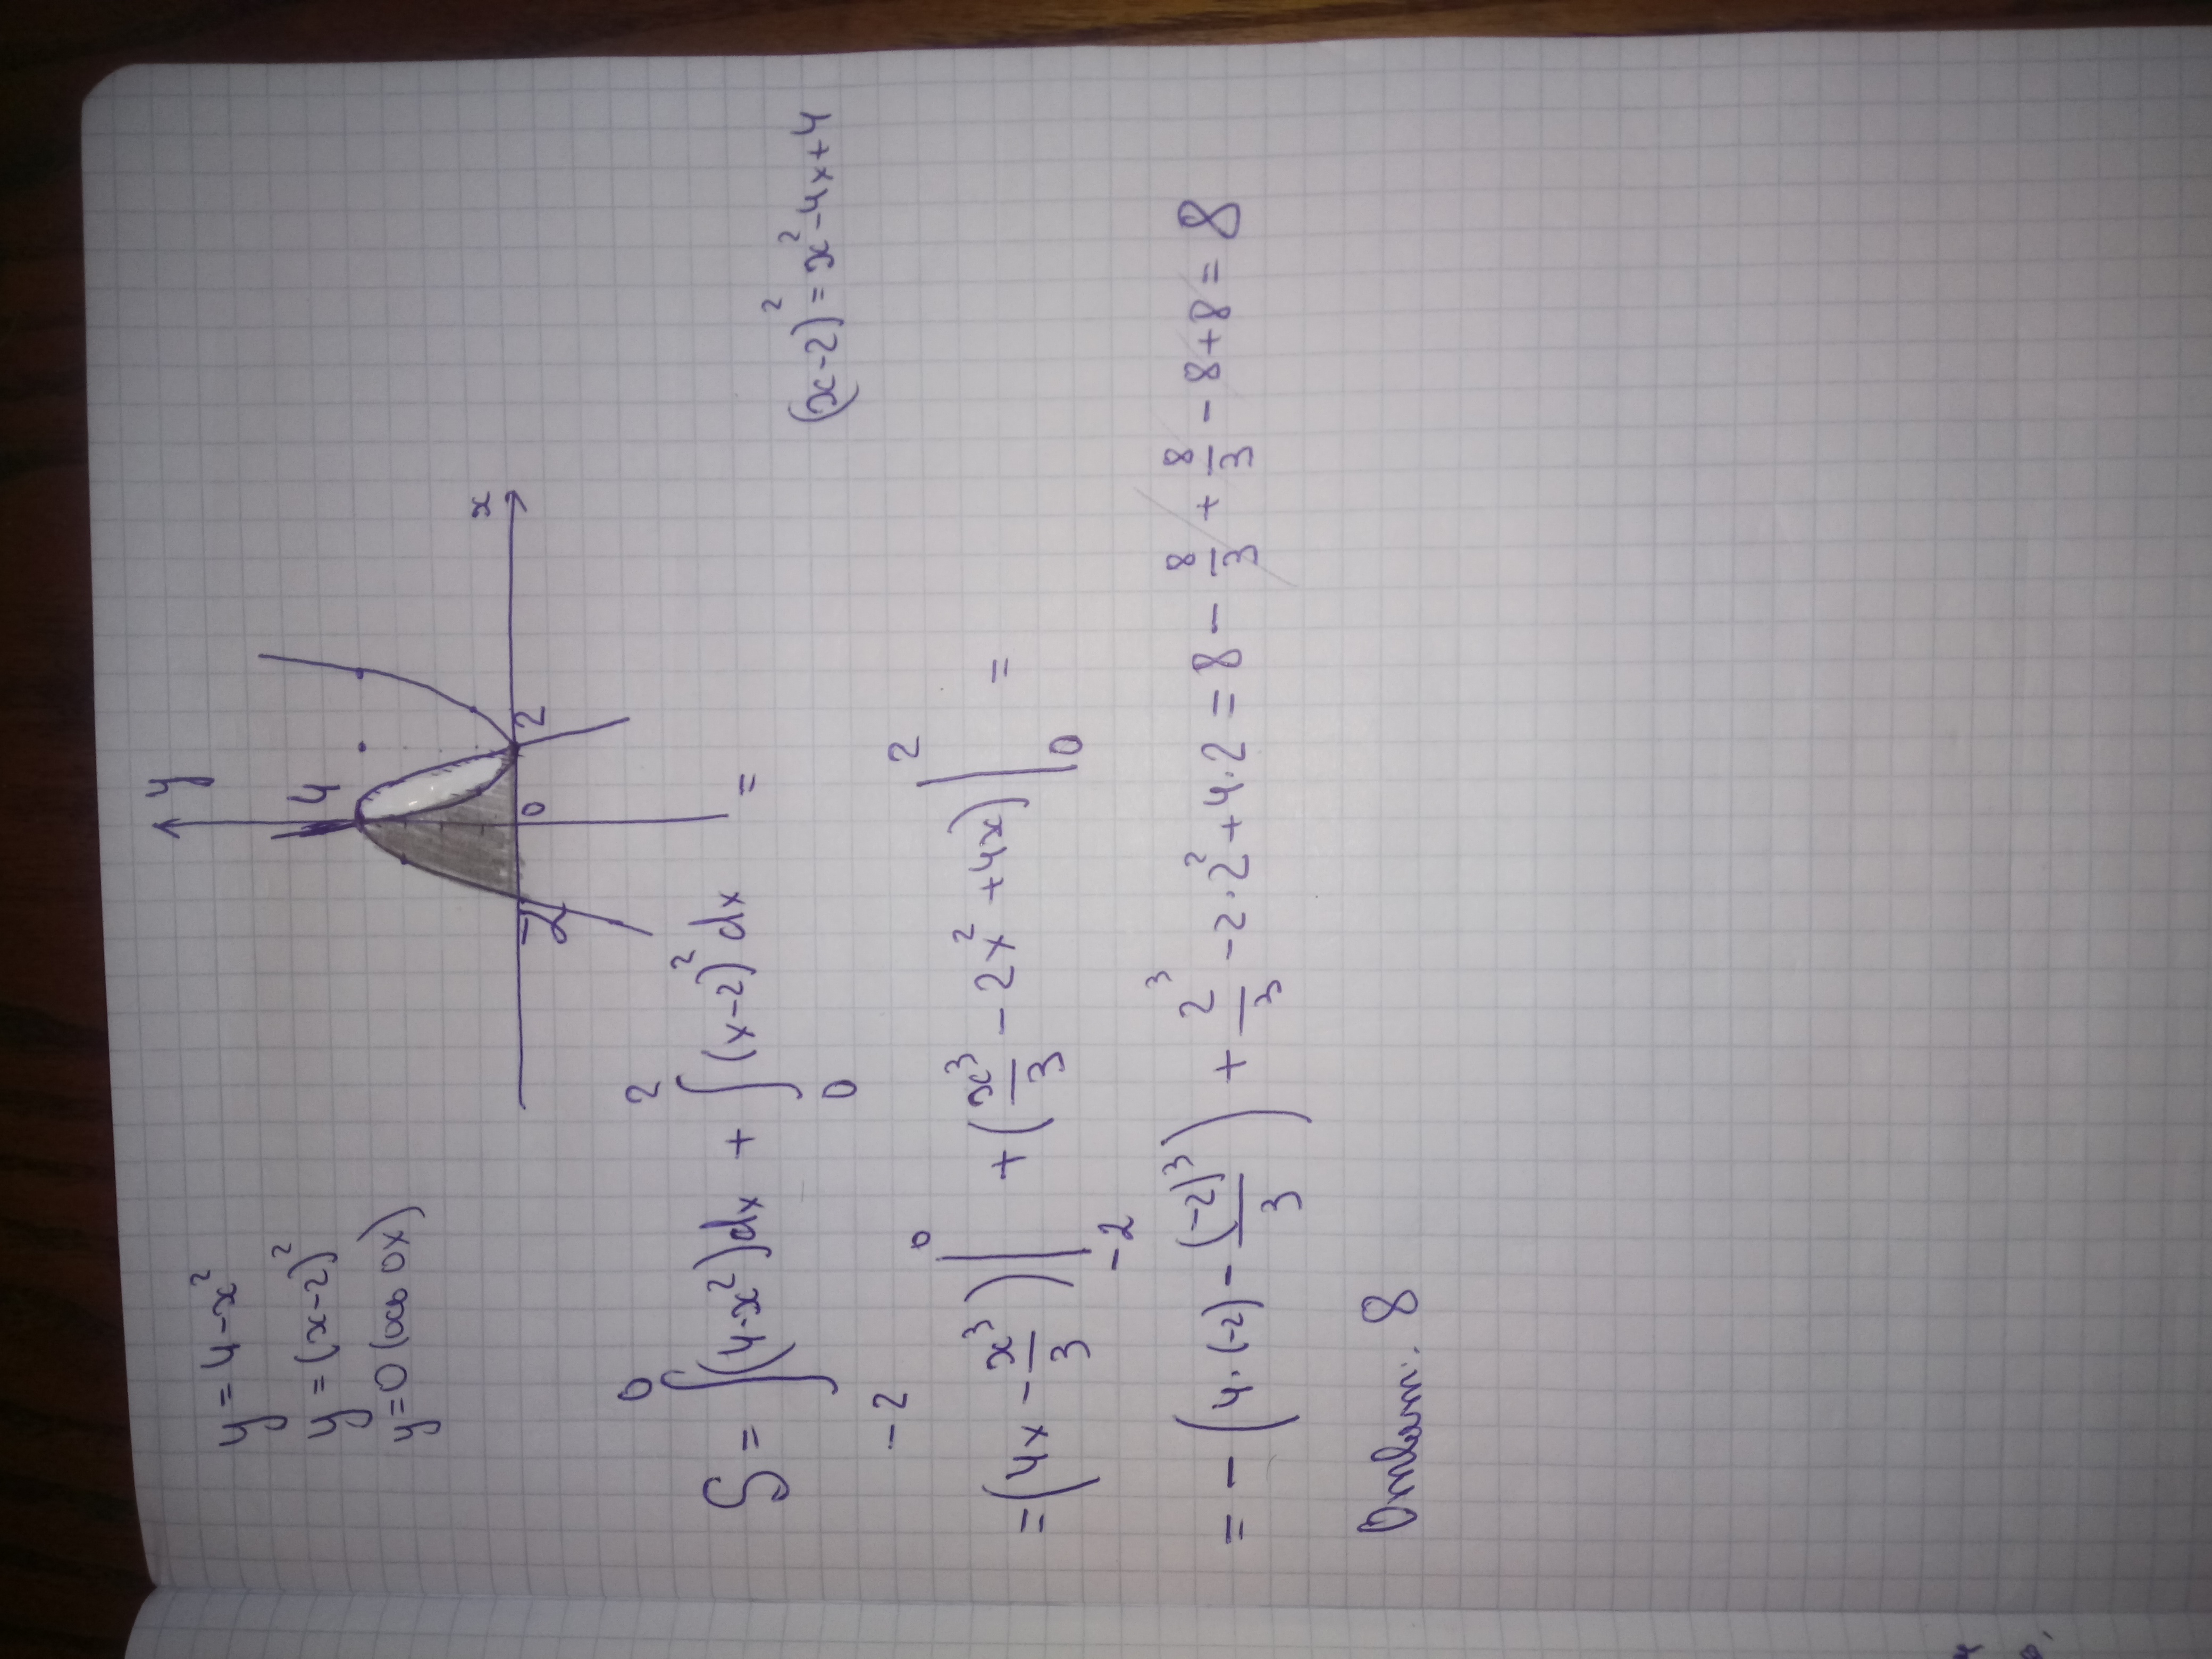 y = 4 - x²
y = (x-2)²
y = 0 (ось Ox)
y
4
x
-2
0
2
S = ∫₋₂⁰ (4-x²)dx + ∫₀² (x-2)² dx =
(x-2)² = x² - 4x + 4
= (4x - x³/3) |₋₂⁰ + (x³/3 - 2x² + 4x) |₀² =
= - (4·(-2) - (-2)³/3) + 2³/3 - 2·2² + 4·2 = 8 - 8/3 + 8/3 - 8 + 8 = 8
Ответ: 8